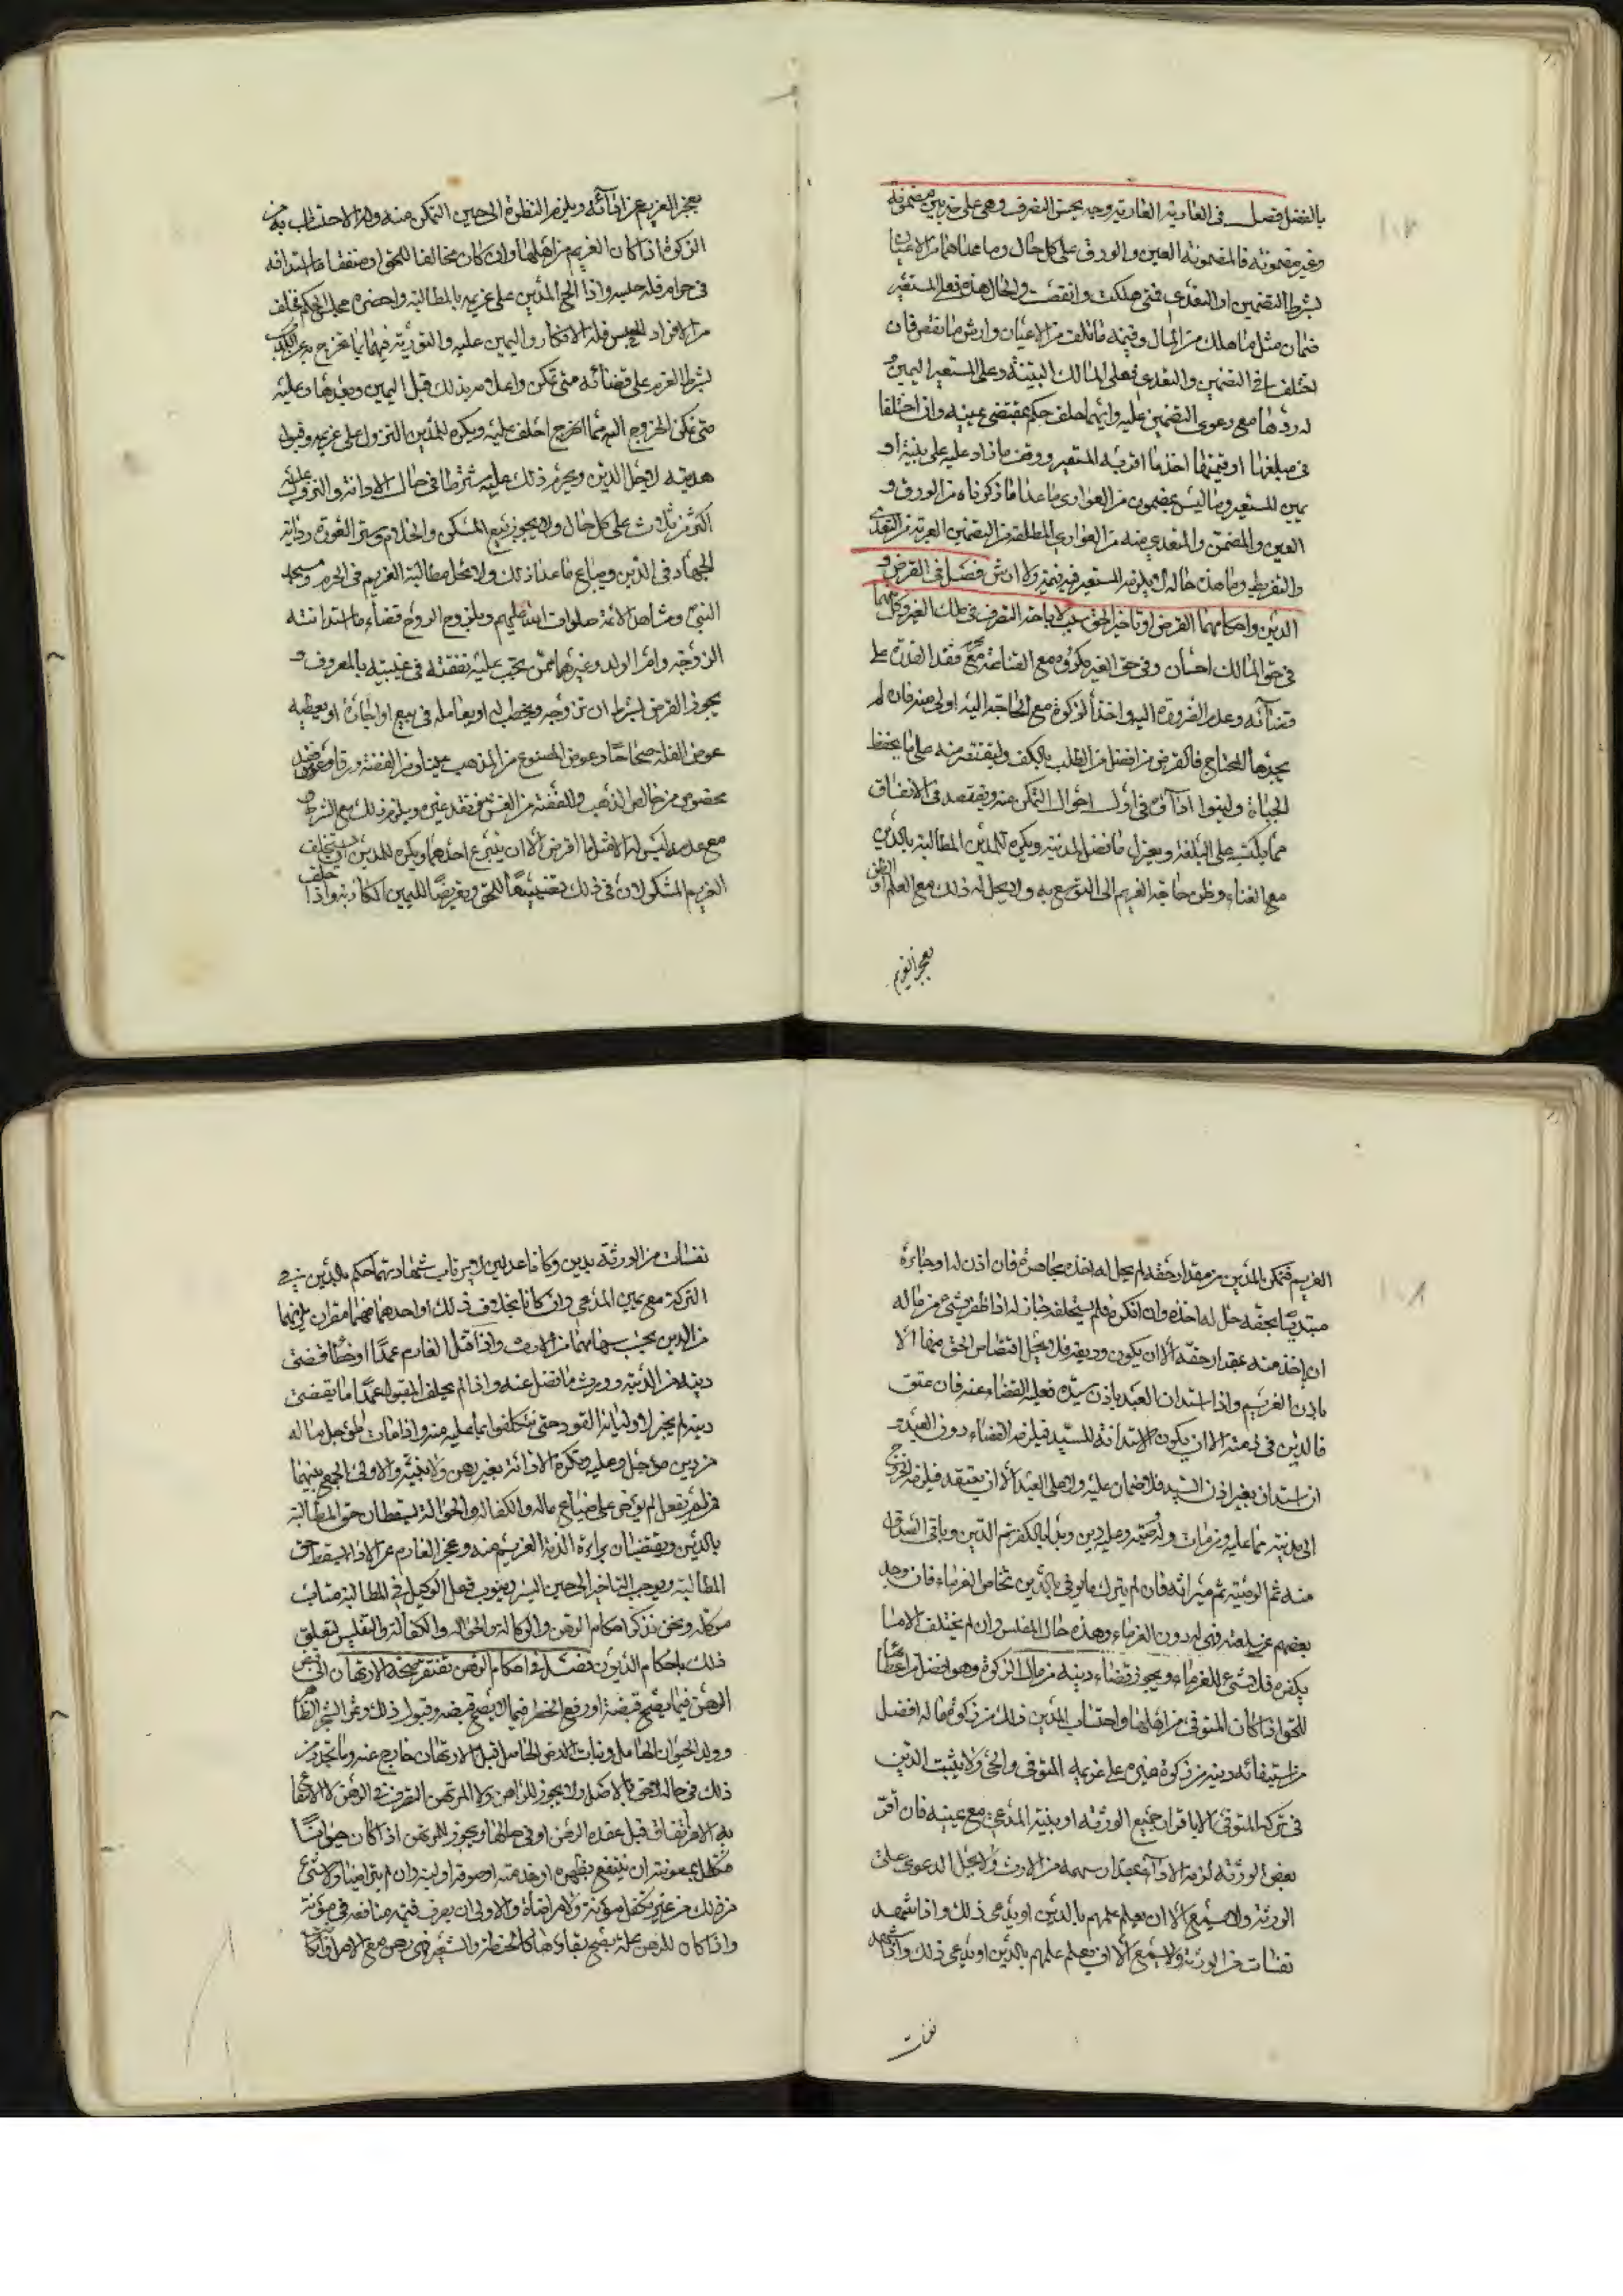 بالفضل فصل في العارية العارية وجه يحسن التصرف وهي على ضربين مضمونة
وغير مضمونة فالمضمونة العين والورق على كل حال وما عداهما من الاعيان
بشرط التضمين او التعدي فمتى هلكت وانقصت والحال هذه فعلى المستعير
ضمان مثل ما هلك من المال وقيمة ما تلف من الاعيان وارش ما نقص فان
اختلفا في التضمين والتعدي فعلى المالك البينة وعلى المستعير اليمين و
له ردها مع دعوى التضمين عليه وايهما حلف حكم بمقتضى يمينه واذا اختلفا
في مبلغها او قيمتها اخذ ما اقر به المستعير ووقف ما زاد عليه على بينة او
يمين للمستعير وما ليس بمضمون من العواري ما عدا ما ذكرناه من الورق و
العين والمضمن والمتعدي فيه من العواري المطلقة من التضمين العرية من التعدي
والتفريط وما هذه حاله لا يلزم المستعير فيه قيمة ولا ارش فصل في القرض و
الدين واحكامهما القرض او تاخير الحق سبب لاباحة التصرف في ملك الغير وكل منهما
في حق المالك احسان وفي حق الغير مكروه مع القناعة محرم مع فقد القدرة على
قضائه وعدم الضرورة اليه واخذ الزكوة مع الحاجة اليه اولى منه فان لم
يجدها المحتاج فالقرض من افضل من الطلب بالكف وليقتصر منه على ما يحفظ
الحياة ولينوا اداؤه في اول احوال التمكن منه ويقتصد في الانفاق
مما يكتسب على البلغة ويعزل ما فضل لدينه ويكره للمدين المطالبة بالدين
مع الغناء وظن حاجة الغريم الى التوسع به ولا يحل له ذلك مع العلم او الظن
بعجز الغريم
بعجز الغريم عن ادائه ويلزم النظرة الى حين التمكن منه وله الاحتساب به من
الزكوة اذا كان الغريم من اهلها وان كان مخالفا للحق او منفقا ما استدانه
في حرام فله حبسه واذا الح المدين على غريمه بالمطالبة واحضره مجلس الحكم فخاف
من الاقرار الحبس فله الانكار واليمين عليه والتورية فيهما بما تخرج به عن الكذب
بشرط العزم على قضائه متى تمكن واعلامه بذلك قبل اليمين وبعدها وعليه
متى تمكن الخروج اليه مما احلف عليه ويكره للمدين النزول على غريمه وقبول
هديته لاجل الدين ويحرم ذلك عليه مشترطا في حال الادانة والنزول عليه
اكثر من ثلاث على كل حال ولا يجوز بيع المسكن والخادم وستر العورة ودابة
الجهاد في الدين ويباع ما عدا ذلك ولا يحل مطالبة الغريم في الحرم ومسجد
النبي ومشاهد الائمة صلوات الله عليهم ويلزم الزوج قضاء ما استدانته
الزوجة وام الولد وغيرهما ممن يجب عليه نفقته في غيبته بالمعروف و
يجوز القرض بشرط ان يزوجه ويخطب له او يعامله في بيع او اجارة او يعطيه
عوض الغلة صحاحا وعوض المصنوع من الذهب عينا ومن الفضة ورقا وعوض نقد
مخصوص من خالص الذهب والفضة من الغش نقد غيره ويلزم ذلك مع الشرط و
مع عدمه ليس له الا مثل ما اقرض الا ان يتبرع احدهما ويكره للمدين ان يستحلف
الغريم المنكر لان في ذلك تضييعا للحق وتعريضا لليمين الكاذبة واذا حلف
الغريم فتمكن المدين من مقدار حقه لم يحل له اخذه مجاحرة فان اذن له او جاءه
مبتديا بحقه حل له اخذه وان انكره فلم يستحلفه جاز له اذا ظفر بشيء من ماله
ان ياخذ منه بمقدار حقه الا ان يكون وديعة فلا يحل اقتصاص الحق منها الا
باذن الغريم واذا استدان العبد باذن سيده فعليه القضاء عنه فان عتق
فالدين في ذمته الا ان يكون الاستدانة للسيد فيلزمه القضاء دون العبد و
ان استدان بغير اذن السيد فلا ضمان عليه ولا على العبد الا ان يعتقه فيلزمه الخروج
الى مدينه مما عليه ومن مات وله وصية وعليه دين وبدا بالكفن ثم الدين وباقي الصداق
منه ثم الوصية ثم ميراثه فان لم يترك ما يوفي بالدين تحاص الغرماء فان وجد
بعضهم عين سلعته فهي له دون الغرماء وهذه حال المفلس وان لم يخلف الا ما
يكفنه فلا شيء للغرماء ويجوز قضاء دينه من مال الزكوة وهو افضل من اعطائها
للحي اذا كان المتوفى من اهلها واحتساب المدين ذلك من زكوة ماله افضل
من استيفائه دينه من زكوة غيره على غريمه المتوفى والحي ولا يثبت الدين
في تركة المتوفى الا باقرار جميع الورثة او بينة المدعي مع يمينه فان اقر
بعض الورثة لزمه الاداء بمقدار سهمه من الارث ولا يحل الدعوى على
الورثة ولا تسمع الا ان يعلم علمهم بالدين او يدعي ذلك واذا شهد
نفسان من الورثة ولا تسمع الا ان يعلم علمهم بالدين او يدعي ذلك واذا شهد
نفسان
نفسان من الورثة بدين وكانا عدلين لا يرتاب بشهادتهما حكم بالدين في
التركة مع يمين المدعي وان كانا بخلاف ذلك او احدهما فهما مقران يلزمهما
من الدين بحسب سهامهما من الارث واذا قتل الغارم عمدا او خطأ قضى
دينه من الدية وورث ما فضل عنه واذا لم يخلف المقتول عمدا ما يقضى
دينه لم يجز لاوليائه القود حتى يتكلفوا بما عليه منه واذا مات المؤجل ما له
من دين مؤجل وعليه وتكره الادانة بغير رهن ولا بينة والاولى الجمع بينهما
فمن لم يفعل لم يؤجر على ضياع ماله والكفالة والحوالة يسقطان حق المطالبة
بالدين ويقتضيان براءة الذمة الغريم منه وعجز الغارم عن الاداء يسقط حق
المطالبة ويوجب التاخير الى حين اليسر وينوب فعل الوكيل في المطالبة مناب
موكله ونحن نذكر احكام الرهن والوكالة والحوالة والكفالة والتفليس لتعلق
ذلك باحكام الديون فصل في احكام الرهن تفتقر صحة الارتهان الى قبض
الرهن فيما يصح قبضه او رفع الحظر فيما لا يصح قبضه وقبول ذلك وثمر الشجر الظاهر
وولد الحيوان الحامل ونبات الارض الحاصل قبل الارتهان خارج عنه وما تجدد من
ذلك في حاله لاحق بالاصل ولا يجوز للراهن ولا للمرتهن التصرف في الرهن الا الانتفاع
به الا باتفاق قبل عقدة الرهن او في حالها ويجوز للمرتهن اذا كان حيوانا
متكفل بمؤنته ان ينتفع بظهره او خدمته او صوفه او لبنه وان لم يتراضيا ولا شيء
من ذلك من غير تكفل مؤنة ولا مراضاة والاولى ان يصرف قيمة منافعه في مؤنته
واذا كان للرهن غلة يصح بقاؤها كالحنطة والشعير فهي رهن مع الاصل وان كانت